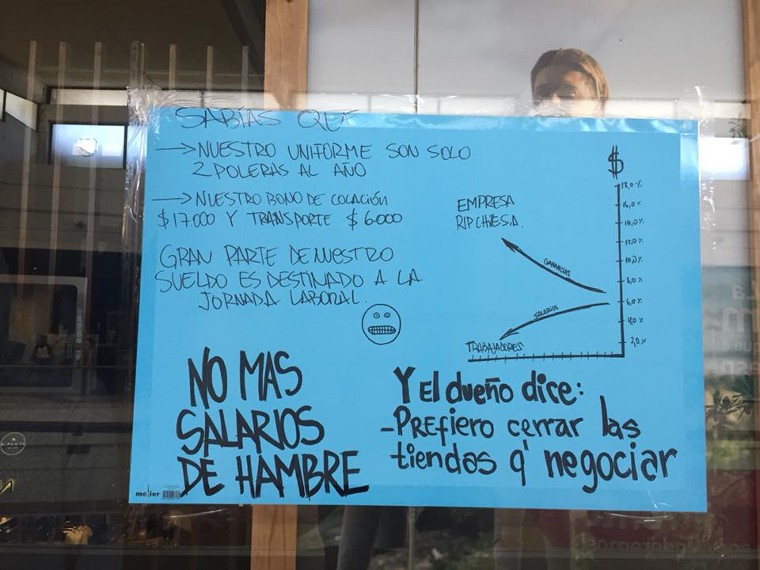 SABÍAS QUE
→ NUESTRO UNIFORME SON SOLO
2 POLERAS AL AÑO
→ NUESTRO BONO DE COLACIÓN
$17.000 Y TRANSPORTE $6.000
GRAN PARTE DE NUESTRO
SUELDO ES DESTINADO A LA
JORNADA LABORAL.
NO MAS
SALARIOS
DE HAMBRE
$
18,0%
16,0%
14,0%
12,0%
10,0%
8,0%
6,0%
4,0%
2,0%
EMPRESA
RIP CHILE S.A.
GANANCIAS
SALARIOS
TRABAJADORES
Y El dueño dice:
- Prefiero cerrar las
tiendas q' negociar